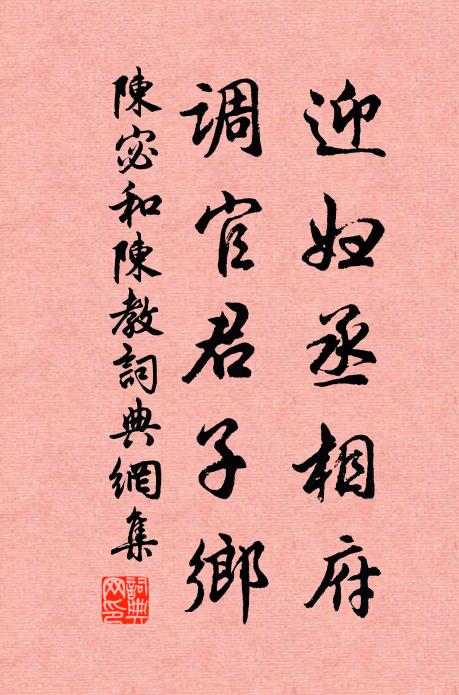 迎妇丞相府
调官君子鄉
陳宓和陳教詞典網集
詞典網印